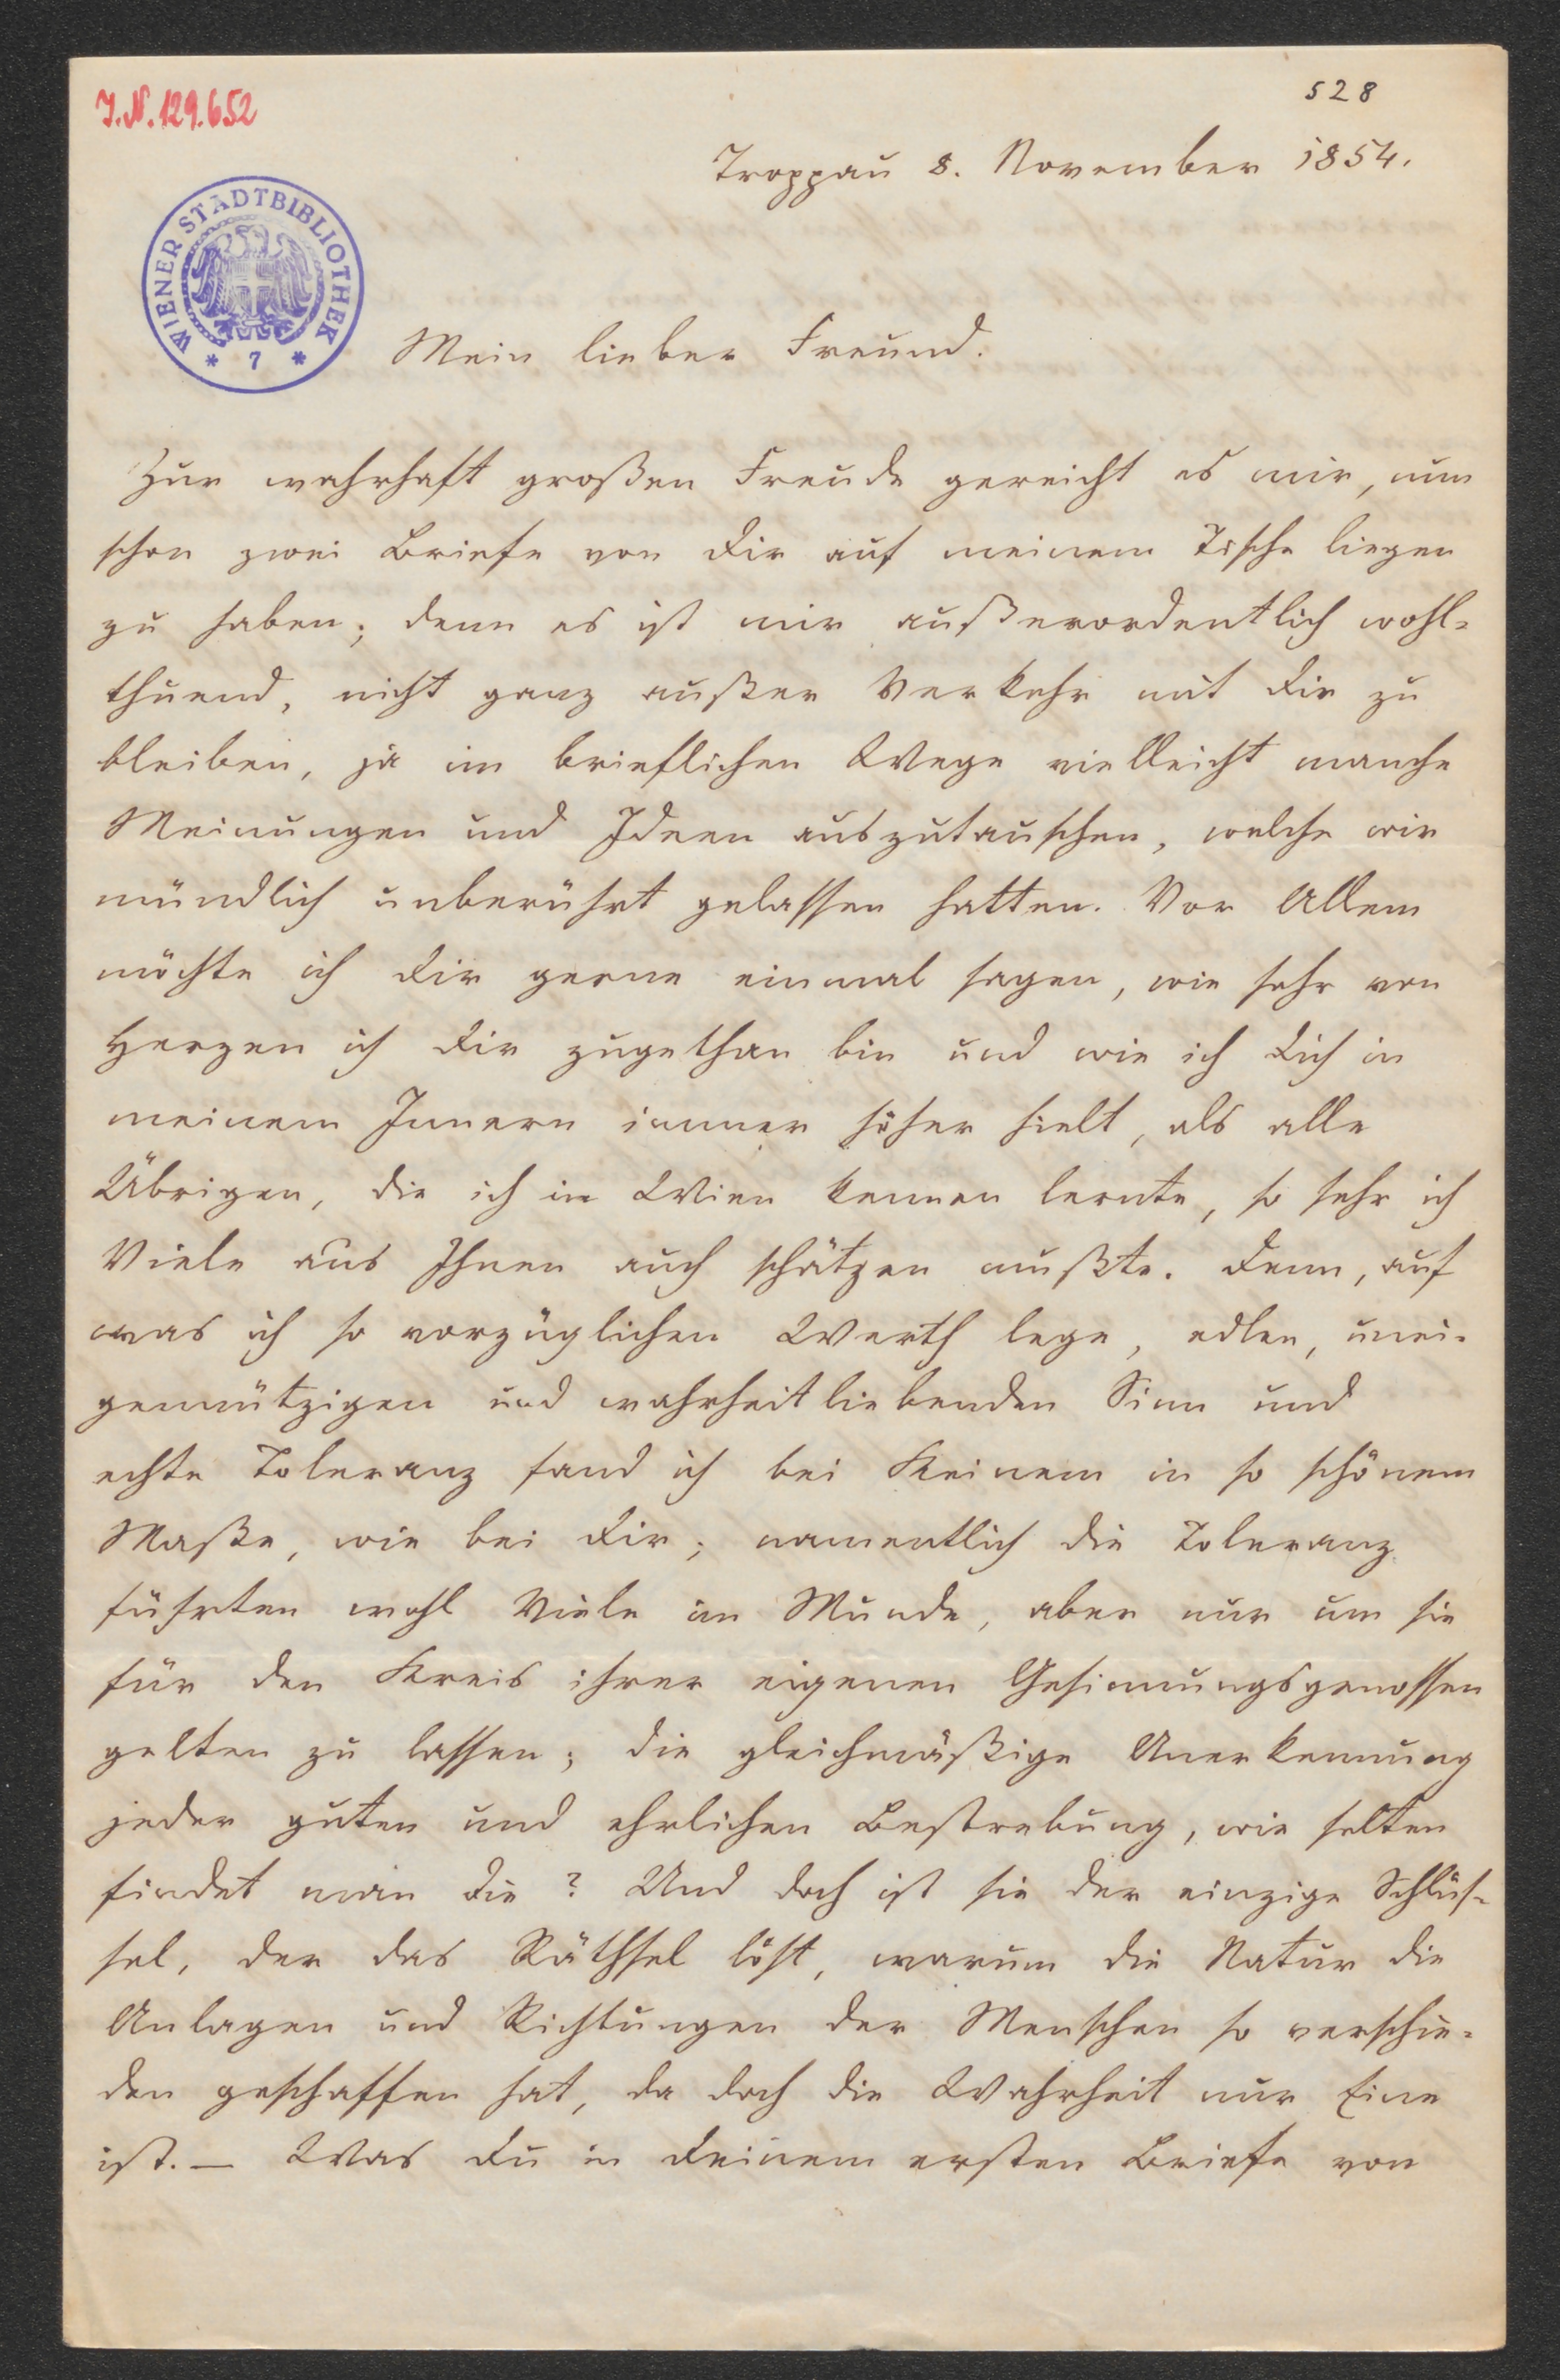 J.N. 129.652
528
WIENER STADTBIBLIOTHEK
* 7 *
Troppau 8. November 1854.
Mein lieber Freund.
Zur wahrhaft großen Freude gereicht es mir, nun
schon zwei Briefe von Dir auf meinem Tische liegen
zu haben; denn es ist mir außerordentlich wohl-
thuend, nicht ganz außer Verkehr mit Dir zu
bleiben, ja im brieflichen Wege vielleicht manche
Meinungen und Ideen auszutauschen, welche wir
mündlich unberührt gelassen hatten. Vor Allem
möchte ich Dir gerne einmal sagen, wie sehr von
Herzen ich Dir zugethan bin und wie ich Dich in
meinem Innern immer höher hielt, als alle
Übrigen, die ich in Wien kennen lernte, so sehr ich
Viele aus Ihnen auch schätzen mußte. Denn, auf
was ich so vorzüglichen Werth lege, edlen, unei-
gennützigen und wahrheitliebenden Sinn und
echte Toleranz fand ich bei Keinem in so schönem
Maße, wie bei Dir; namentlich die Toleranz
führten wohl Viele im Munde, aber nur um sie
für den Kreis ihrer eigenen Gesinnungsgenossen
gelten zu lassen; die gleichmäßige Anerkennung
jeder guten und ehrlichen Bestrebung, wie selten
findet man die? Und doch ist sie der einzige Schlüs-
sel, der das Räthsel löst, warum die Natur die
Anlagen und Richtungen der Menschen so verschie-
den geschaffen hat, da doch die Wahrheit nur Eine
ist. — Was Du in Deinem ersten Briefe von